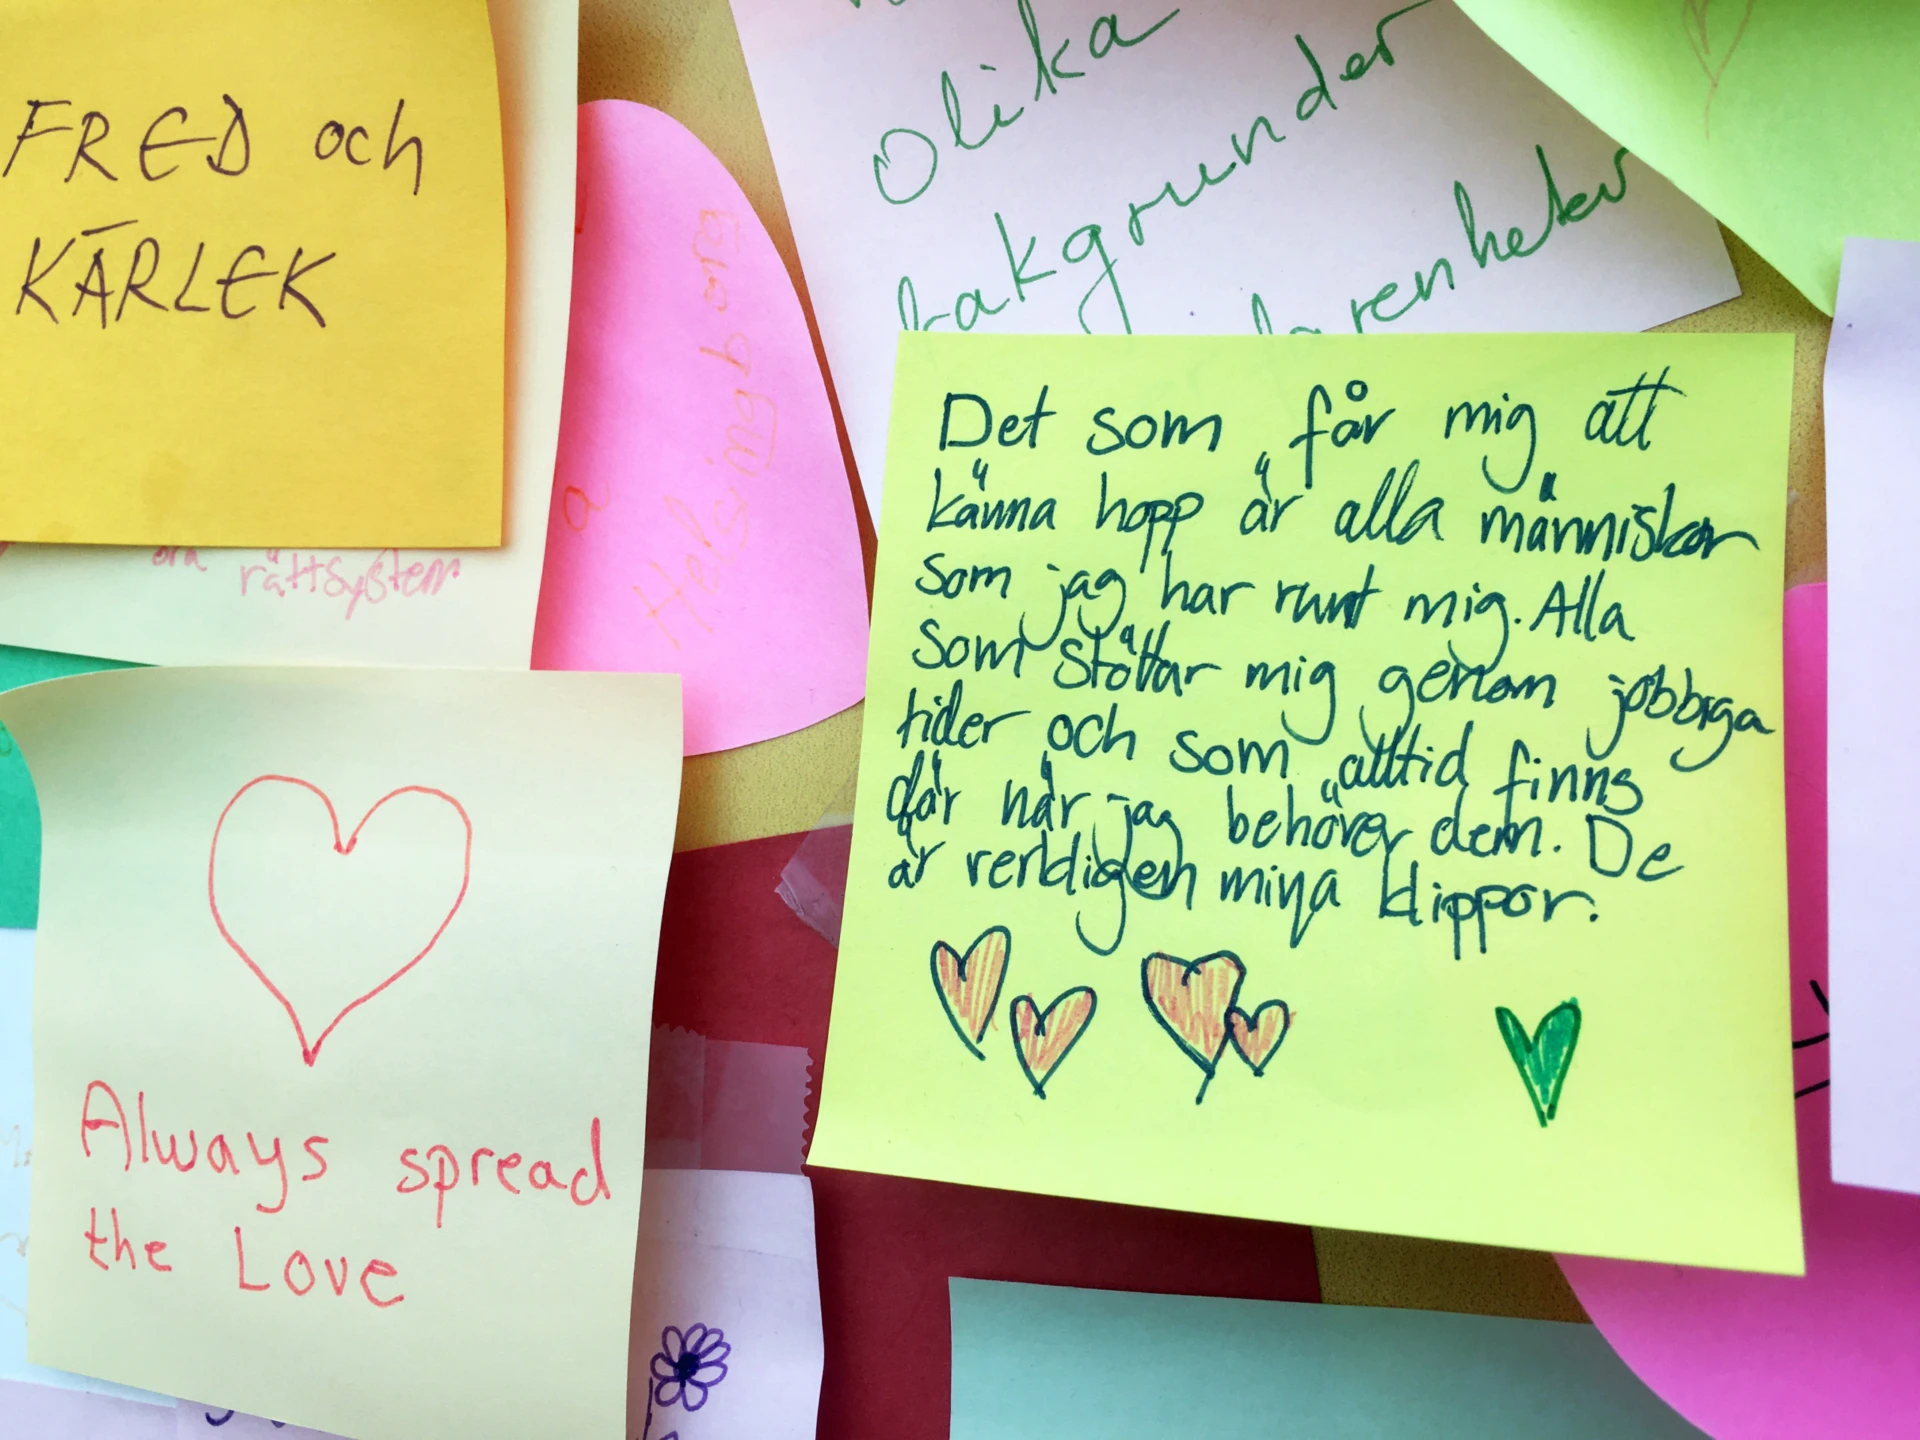 FRED och
KÄRLEK
rättsystem
a
Helsingborg
Olika
bakgrunder
Det som får mig att
känna hopp är alla människor
som jag har runt mig. Alla
som stöttar mig genom jobbiga
tider och som alltid finns
där när jag behöver dem. De
är verkligen mina klippor.
Always spread
the Love